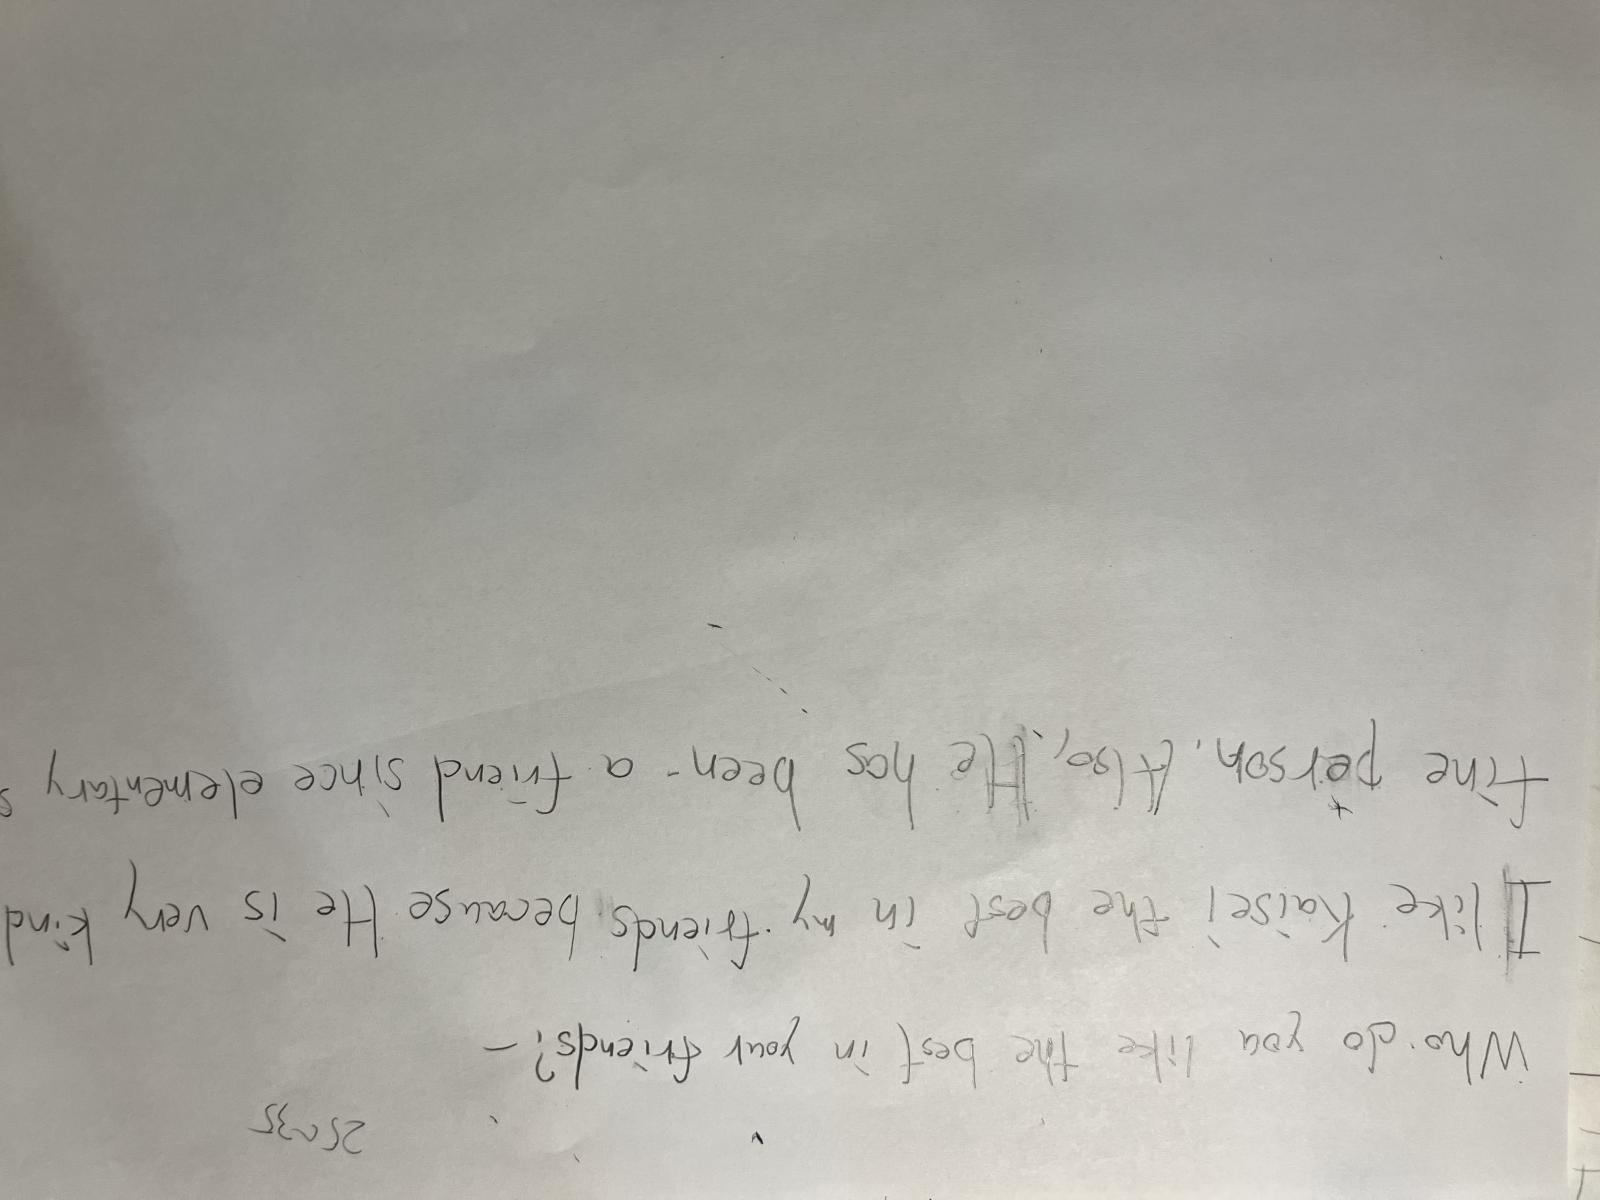 25~35
Who do you like the best in your friends?
I like Kaisei the best in my friends because He is very kind
fine person. Also, He has been a friend since elementary s